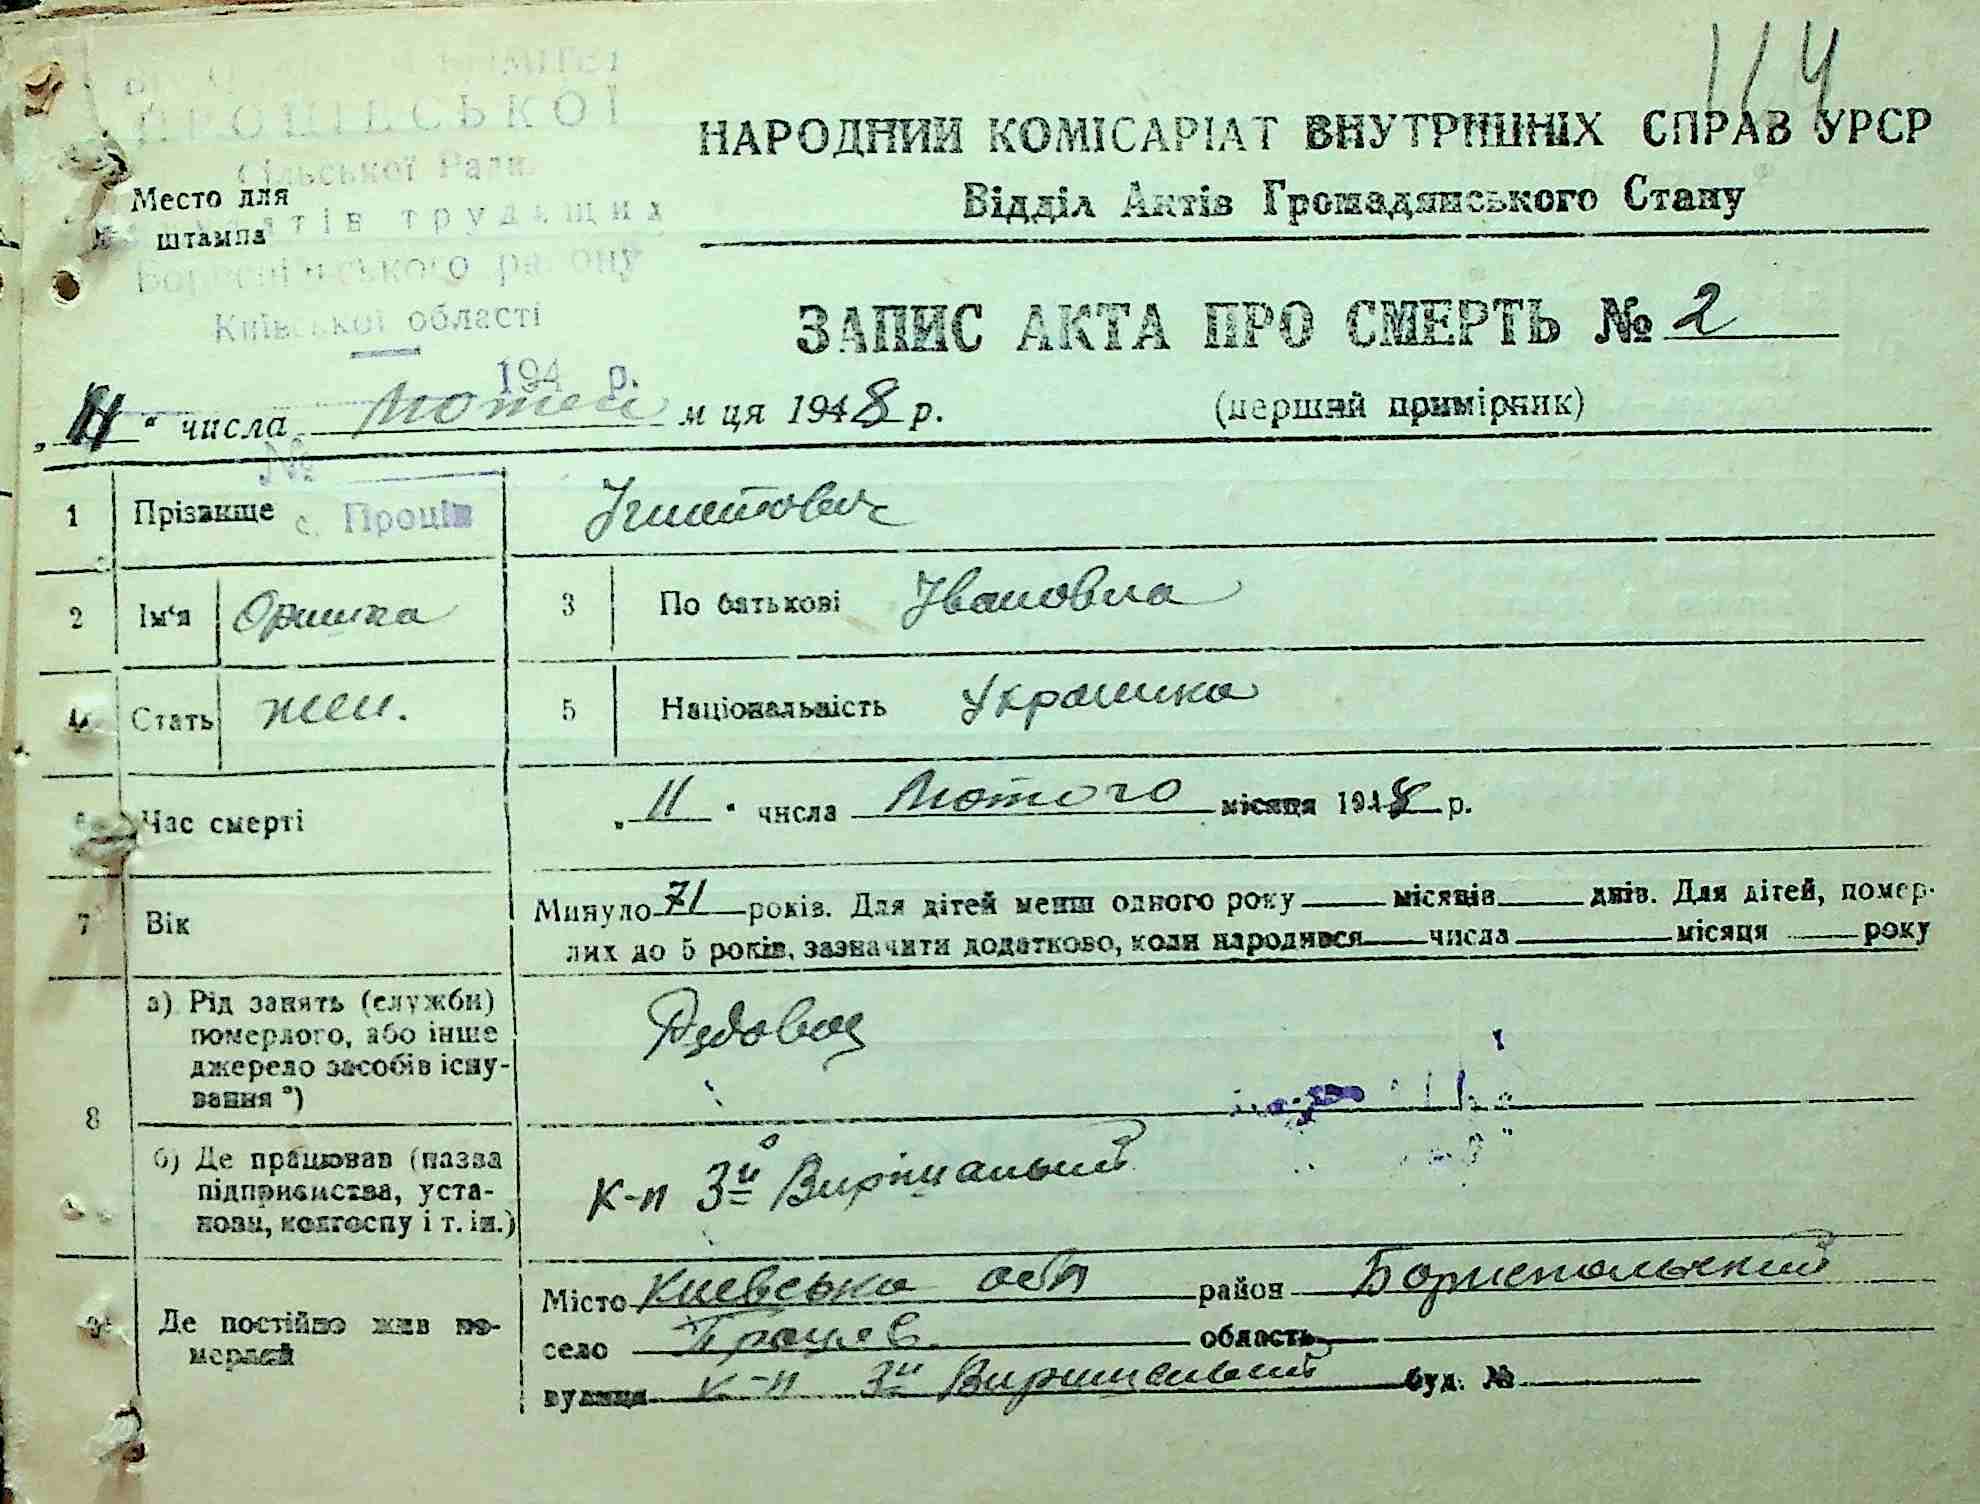 114
ПРОЦІВСЬКОЇ
Сільської Ради
трудящих
Бориспільського району
Київської області
194 р.
№
с. Проців
Место для
штампа
НАРОДНИЙ КОМІСАРІАТ ВНУТРІШНІХ СПРАВ УРСР
Відділ Актів Громадянського Стану
ЗАПИС АКТА ПРО СМЕРТЬ № 2
(перший примірник)
„11" числа м ця 1948 р.
1 Прізвище
2 Ім'я Оришка 3 По батькові Івановна
4 Стать жен. 5 Національність Украинка
Час смерті „11" числа Лютого місяця 1948 р.
7 Вік Минуло 71 років. Для дітей менш одного року місяців днів. Для дітей, помер-
лих до 5 років, зазначити додатково, коли народився числа місяця року
8 а) Рід занять (служби)
померлого, або інше
джерело засобів існу-
вання
)
Рядовая
б) Де працював (назва
підприємства, уста-
нови, колгоспу і т. ін.)
к-п 3й Вирішальний
Де постійно жив по-
мерлий
Місто Киевська обл район Бориспольский
село Процев область
вулиця к-п 3й Вирішальний буд. №